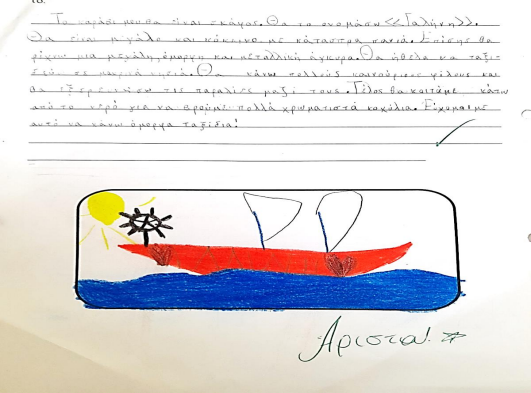 Το καράβι μου θα είναι σκάφος. Θα το ονομάσω <<Γαλήνη>>.
Θα είναι μεγάλο και κόκκινο με κάτασπρα πανιά. Επίσης θα
έχει μια μεγάλη, όμορφη και μεταλλική άγκυρα. Θα ήθελα να ταξι-
δεύω σε μαγικά νησιά. Θα κάνω πολλούς καινούριους φίλους και
θα εξερευνήσω τις παραλίες μαζί τους. Τέλος θα κοιτάμε κάτω
από το νερό για να βρούμε πολλά χρωματιστά κοχύλια. Εύχομαι με
αυτό να κάνω όμορφα ταξίδια!
Άριστα!